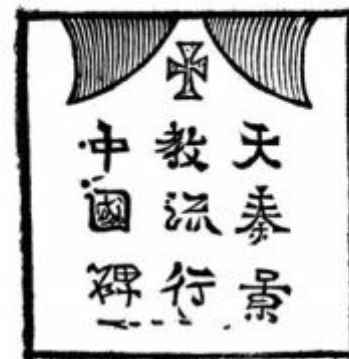 天泰景
教流行
中國碑